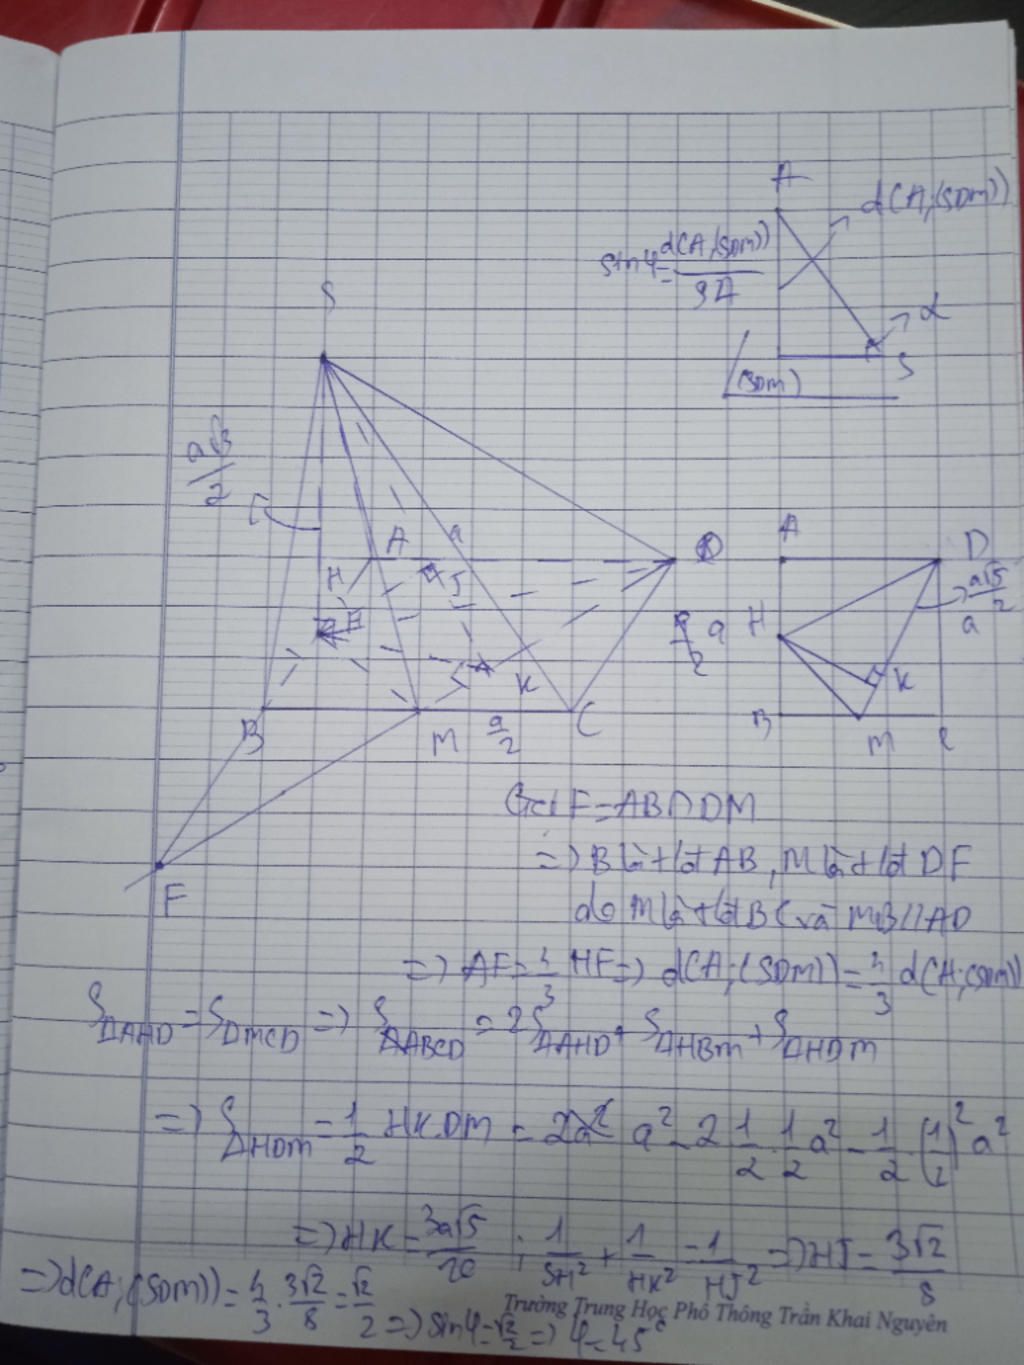 A
d(A;(SDM))
sin φ = d(A,(SDM)) / SA
α
S
(SDM)
S
a√3 / 2
A a D
H J
K
B M a/2 C
F
A D
a√5 / 2
a H a
K
B M C
Gọi F = AB ∩ DM
=> B là tđ AB, M là tđ DF
do M là tđ BC và MB // AD
=> AF = 4/3 HF => d(A;(SDM)) = 4/3 d(H;(SDM))
S△AHD = S△MCD => S△ABCD = 2S△AHD + S△HBM + S△HDM
=> S△HDM = 1/2 HK.DM = a² - 2 1/2 . 1/2 a² - 1/2 . (1/2)² a²
=> HK = 3a√5 / 10 ; 1/SH² + 1/HK² = 1/HJ² => HJ = 3√2 / 8
=> d(A;(SDM)) = 4/3 . 3√2/8 = √2/2 => sin φ = √2/2 => φ = 45°
Trường Trung Học Phổ Thông Trần Khai Nguyên